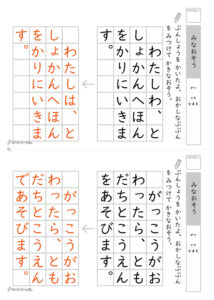 みなおそう
ぶんしょうを かいたよ。おかしな ぶぶん
を みつけて かきなおそう。
わたしわ、と
しょかんへほん
をかりにいきま
す。
←
わたしは、と
しょかんへほん
をかりにいきま
す。
みなおそう
ぶんしょうを かいたよ。おかしな ぶぶん
を みつけて かきなおそう。
がっこうがお
わったら、とも
だちとこうえん
をあそびます。
←
がっこうがお
わったら、とも
だちとこうえん
であそびます。